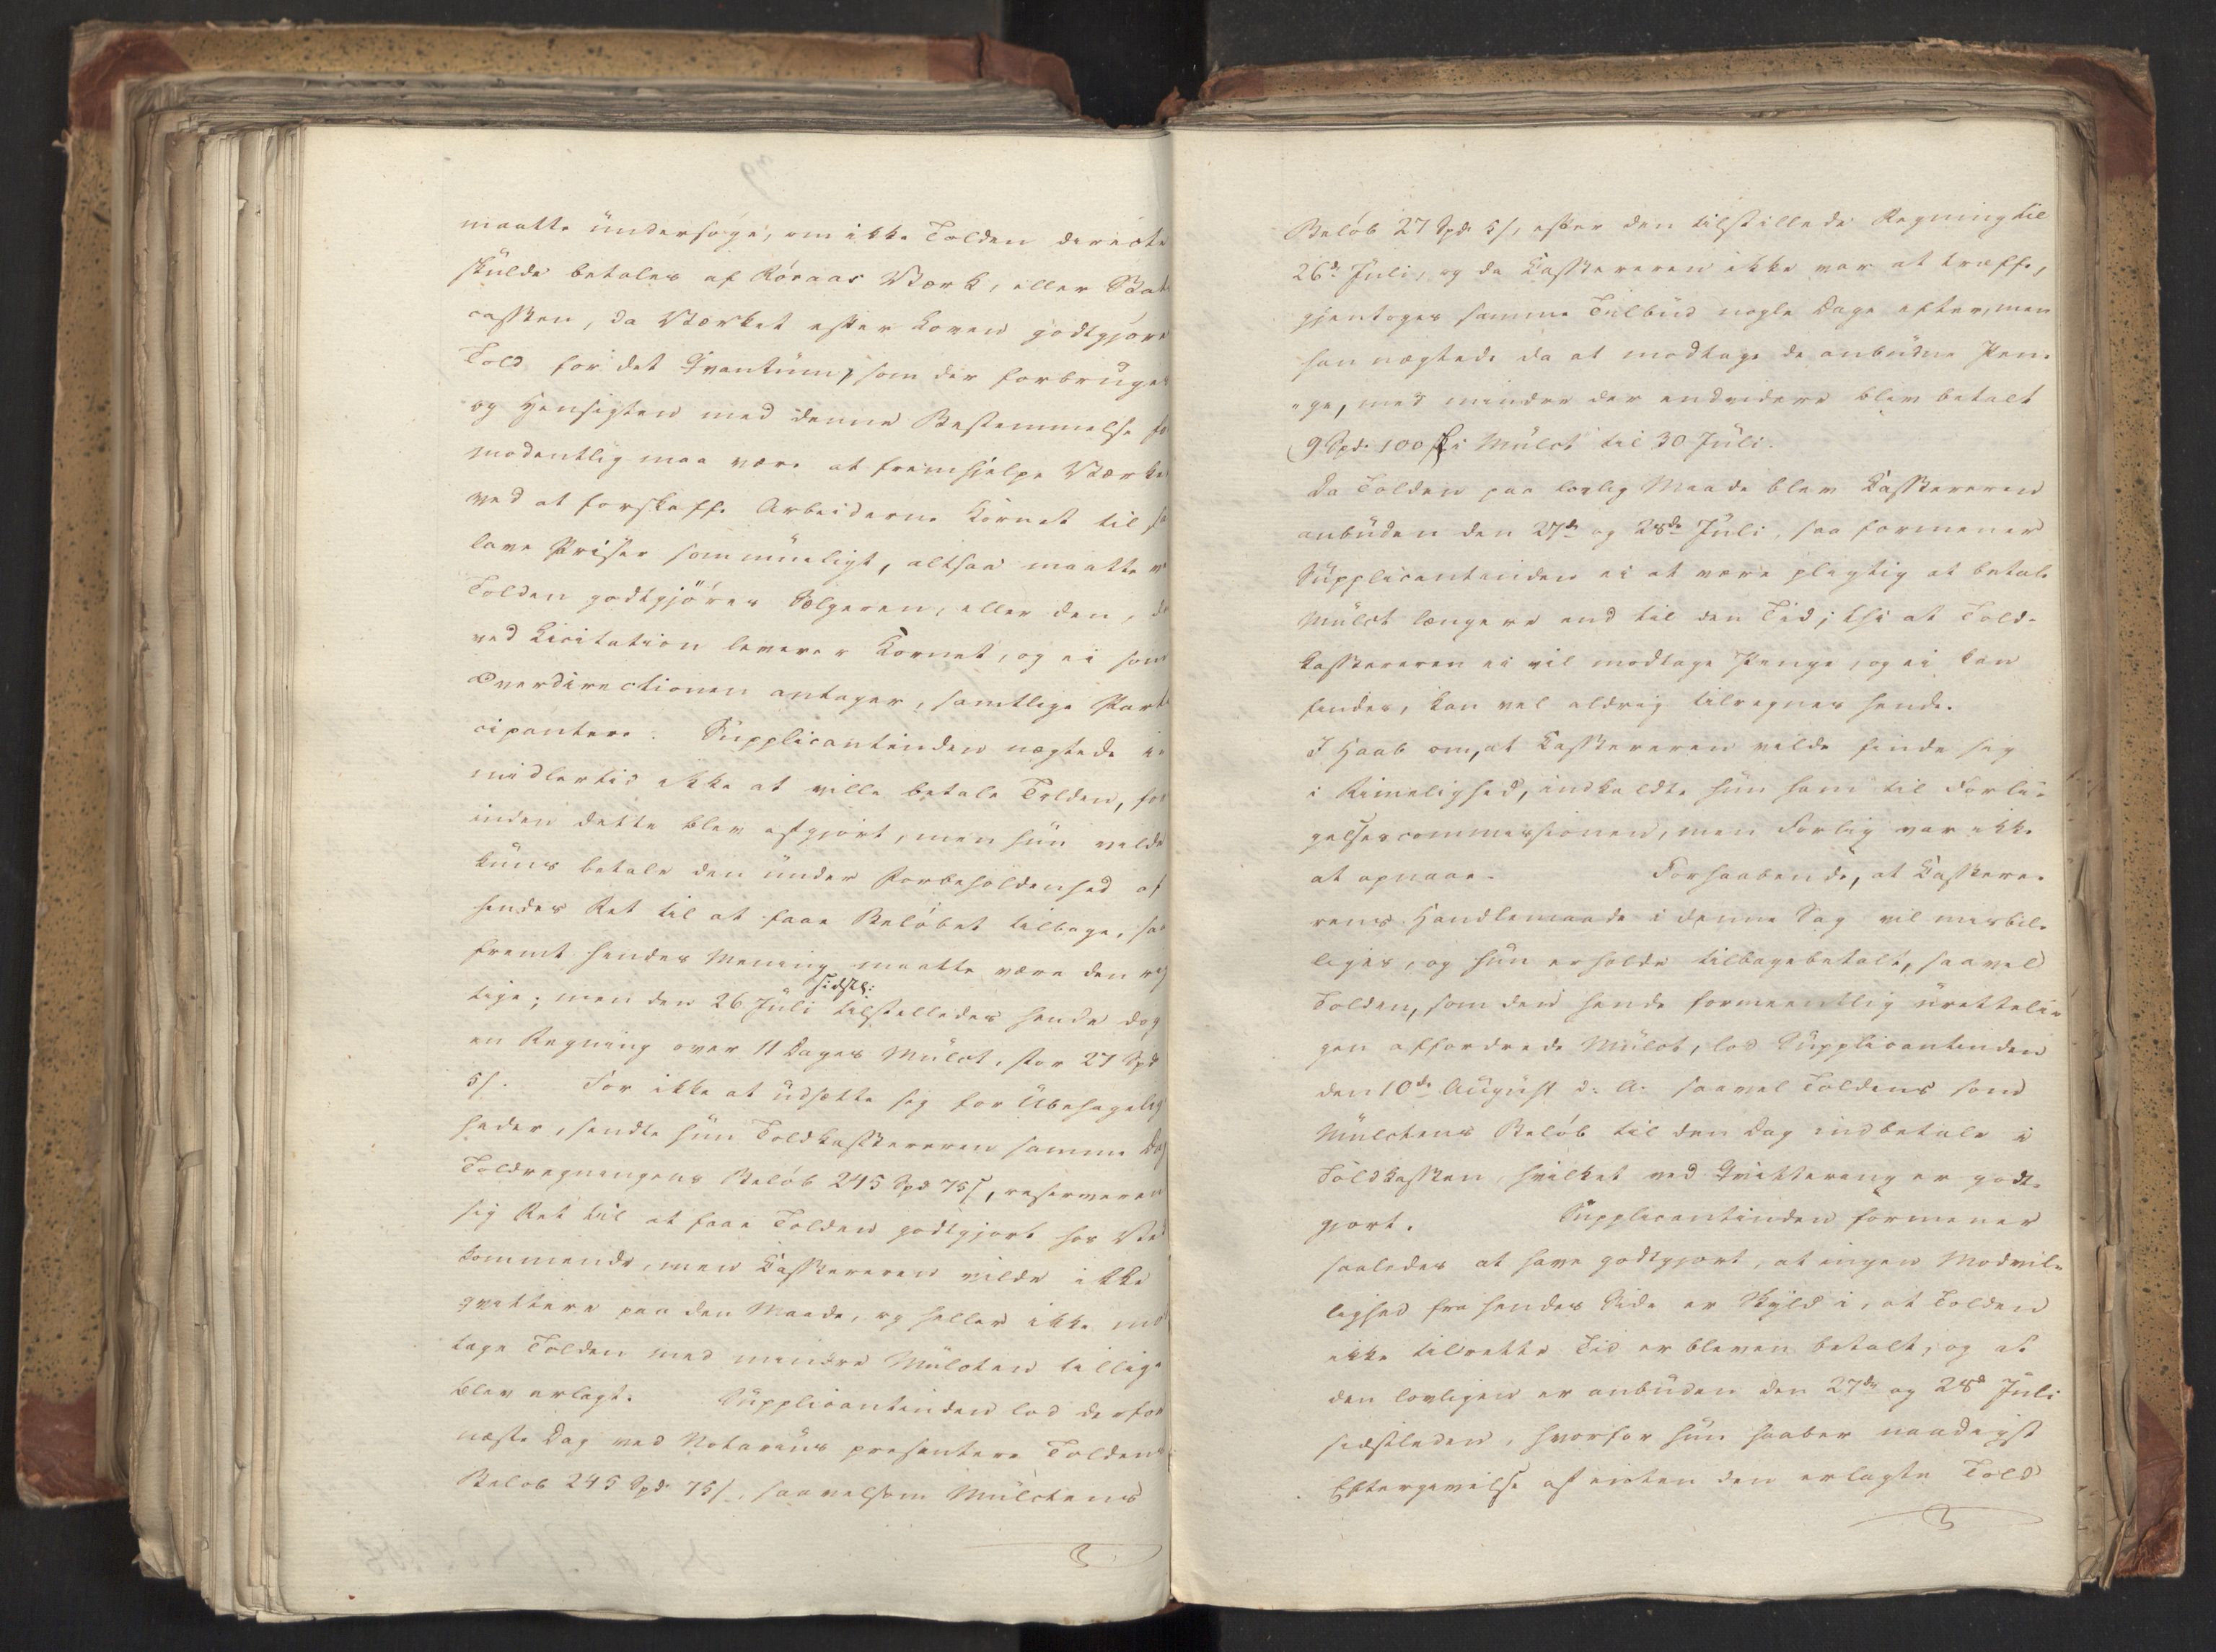 maatte undersøge, om ikke Tolden directe
skulde betales af Røraas Værk, eller Stats
cassken, da Værket efter Loven godtgjøres
Told for det Qvantum, som der forbruges
og Hensigten med denne Bestemmelse for
modentlig maa være at fremhjelpe Værket
ved at forskaffe Arbeiderne Kornet til saa
lave Priser som mueligt, altsaa maatte vel
Tolden godtgjöres Sælgeren, eller den, der
ved Licitation leverer Kornet, og ei som
Overdirectionen antager, samtlige Parti
cipantere. Supplicantinden nægtede i
midlertid ikke at ville betale Tolden, for
inden dette blev afgjort, men hun vilde
kuns betale den under Forbeholdenhed af
hendes Ret til at faae Beløbet tilbage, saa
fremt hendes Mening maatte være den rig
tige; men den 26 Juli sidstl: tilstilledes hende dog
en Regning over 11 Dages Mulct, stor 27 Spd
5 s. For ikke at udsætte sig for Ubehagelig
heder, sendte hun Toldkasskereren samme Dag
Toldregningens Beløb 245 Spd 75 s, reserverende
sig Ret til at faae Tolden godtgjort hos Ved
kommende, men Casskereren vilde ikke
qvittere paa den Maade, og heller ikke mod
tage Tolden med mindre Mulcten tillige
blev erlagt. Supplicantinden lod derfor
næste Dag ved Notarius præsentere Toldens
Beløb 245 Spd 75 s, saavelsom Mulctens
Beløb 27 Spd 5 s, efter den tilstillede Regning til
26de Juli, og da Casskereren ikke var at træffe,
gjentoges samme Tilbud nogle Dage efter, men
han nægtede da at modtage de anbudne Pen-
ge, med mindre der endvidere blev betalt
9 Spd. 100 s i Mulct til 30 Juli.
Da Tolden paa lovlig Maade blev Casskereren
anbuden den 27de og 28de Juli, saa formener
Supplicantinden ei at være pligtig at betale
Mulct længere end til den Tid; thi at Told-
kasskereren ei vil modtage Penge, og ei kan
findes, kan vel aldrig tilregnes hende.
I Haab om, at Casskereren vilde finde sig
i Rimelighed, indkaldte hun ham til Forli-
gelsescommissionen, men Forlig var ikke
at opnaae. Forhaabende, at Casskere-
rens Handlemaade i denne Sag vil misbil-
liges, og hun erholde tilbagebetalt, saavel
Tolden, som den hende formeentlig uretteli-
gen affordrede Mulct, lod Supplicantinden
den 10de August d. A. saavel Toldens som
Mulctens Beløb til den Dag indbetale i
Toldkassken, hvilket ved Qvittering er godt-
gjort. Supplicantinden formener
saaledes at have godtgjort, at ingen Modvil-
lighed fra hendes Side er Skyld i, at Tolden
ikke til rette Tid er bleven betalt, og at
den lovligen er anbuden den 27de og 28de Juli
sidstleden, hvorfor hun haaber naadigst
Eftergivelse af enten den erlagte Told